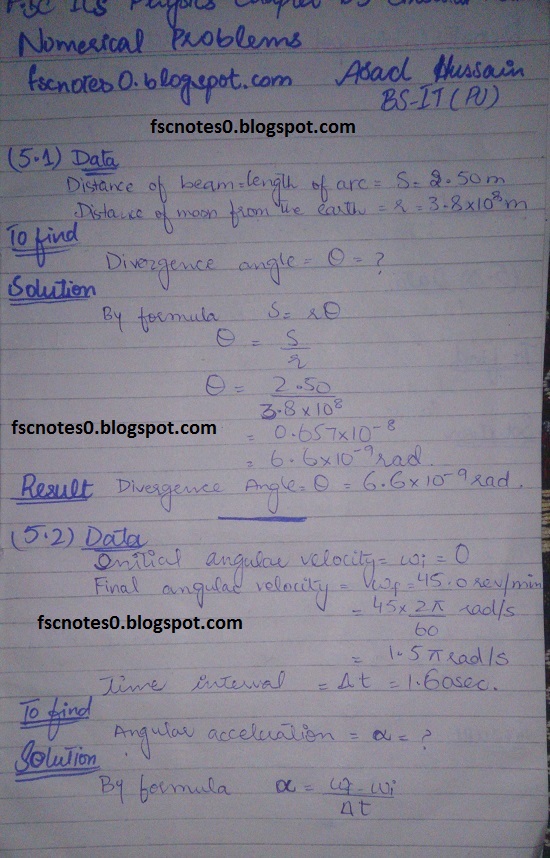 FSC ICS Physics Chapter 05
Numerical Problems
fscnotes0.blogspot.com Asad Hussain
BS-IT (PU)
fscnotes0.blogspot.com
(5.1) Data
Distance of beam = length of arc = S = 2.50 m
Distance of moon from the earth = r = 3.8×10⁸ m
To find
Divergence angle = θ = ?
Solution
By formula S = rθ
θ = S/r
θ = 2.50/3.8×10⁸
fscnotes0.blogspot.com
= 0.657×10⁻⁸
= 6.6×10⁻⁹ rad.
Result Divergence Angle = θ = 6.6×10⁻⁹ rad.
(5.2) Data
Initial angular velocity = ωi = 0
Final angular velocity = ωf = 45.0 rev/min
= 45 × 2π/60 rad/s
fscnotes0.blogspot.com
= 1.5π rad/s
Time interval = Δt = 1.60 sec.
To find
Angular acceleration = α = ?
Solution
By formula α = ωf - ωi/Δt